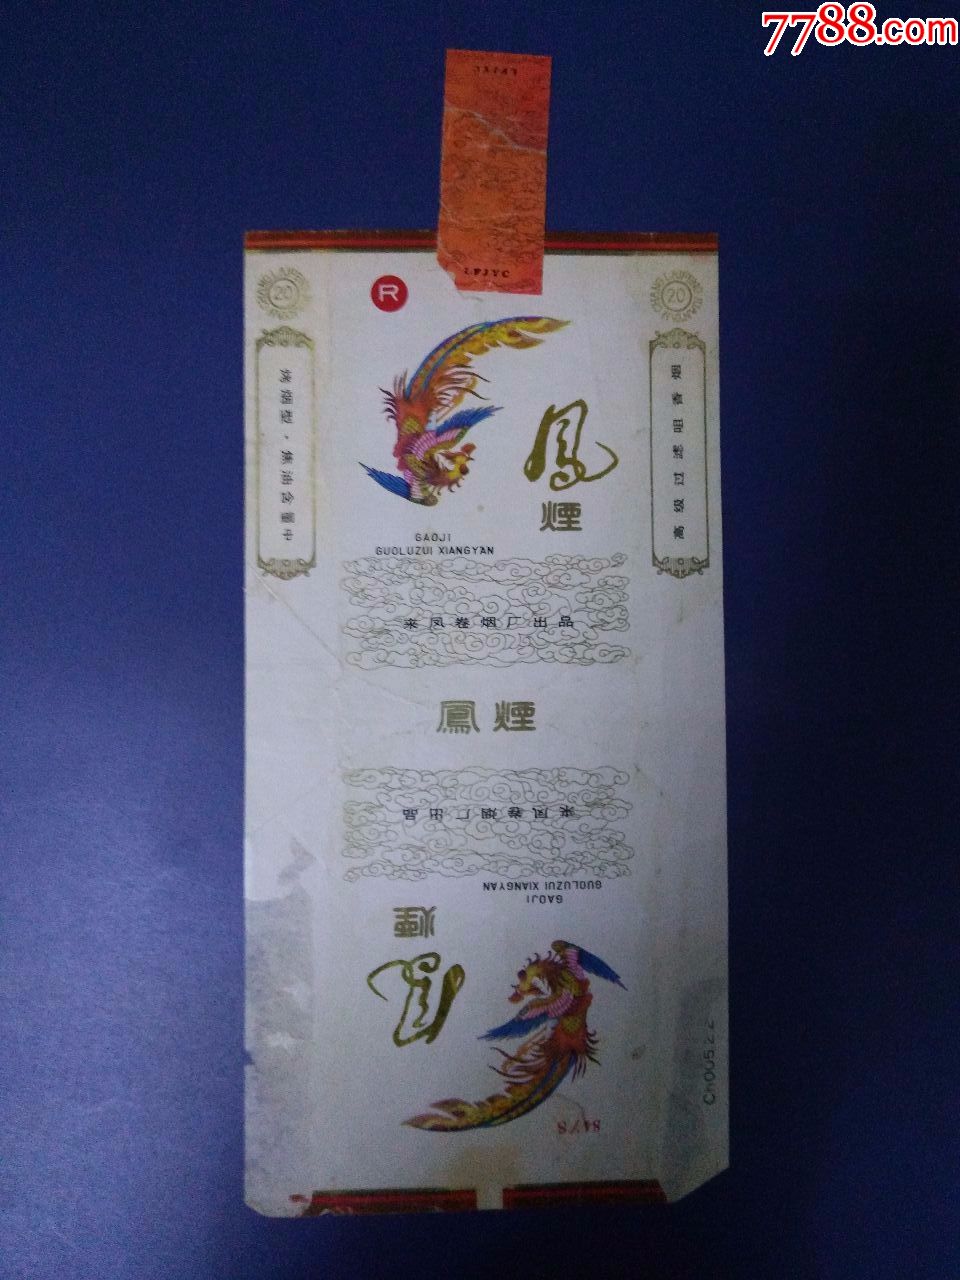 7788.com
R
20
20
烤烟型·焦油含量中
高级过滤咀香烟
鳳
煙
GAOJI
GUOLUZUI XIANGYAN
来凤卷烟厂出品
鳳煙
来凤卷烟厂出品
GAOJI
GUOLUZUI XIANGYAN
煙
鳳